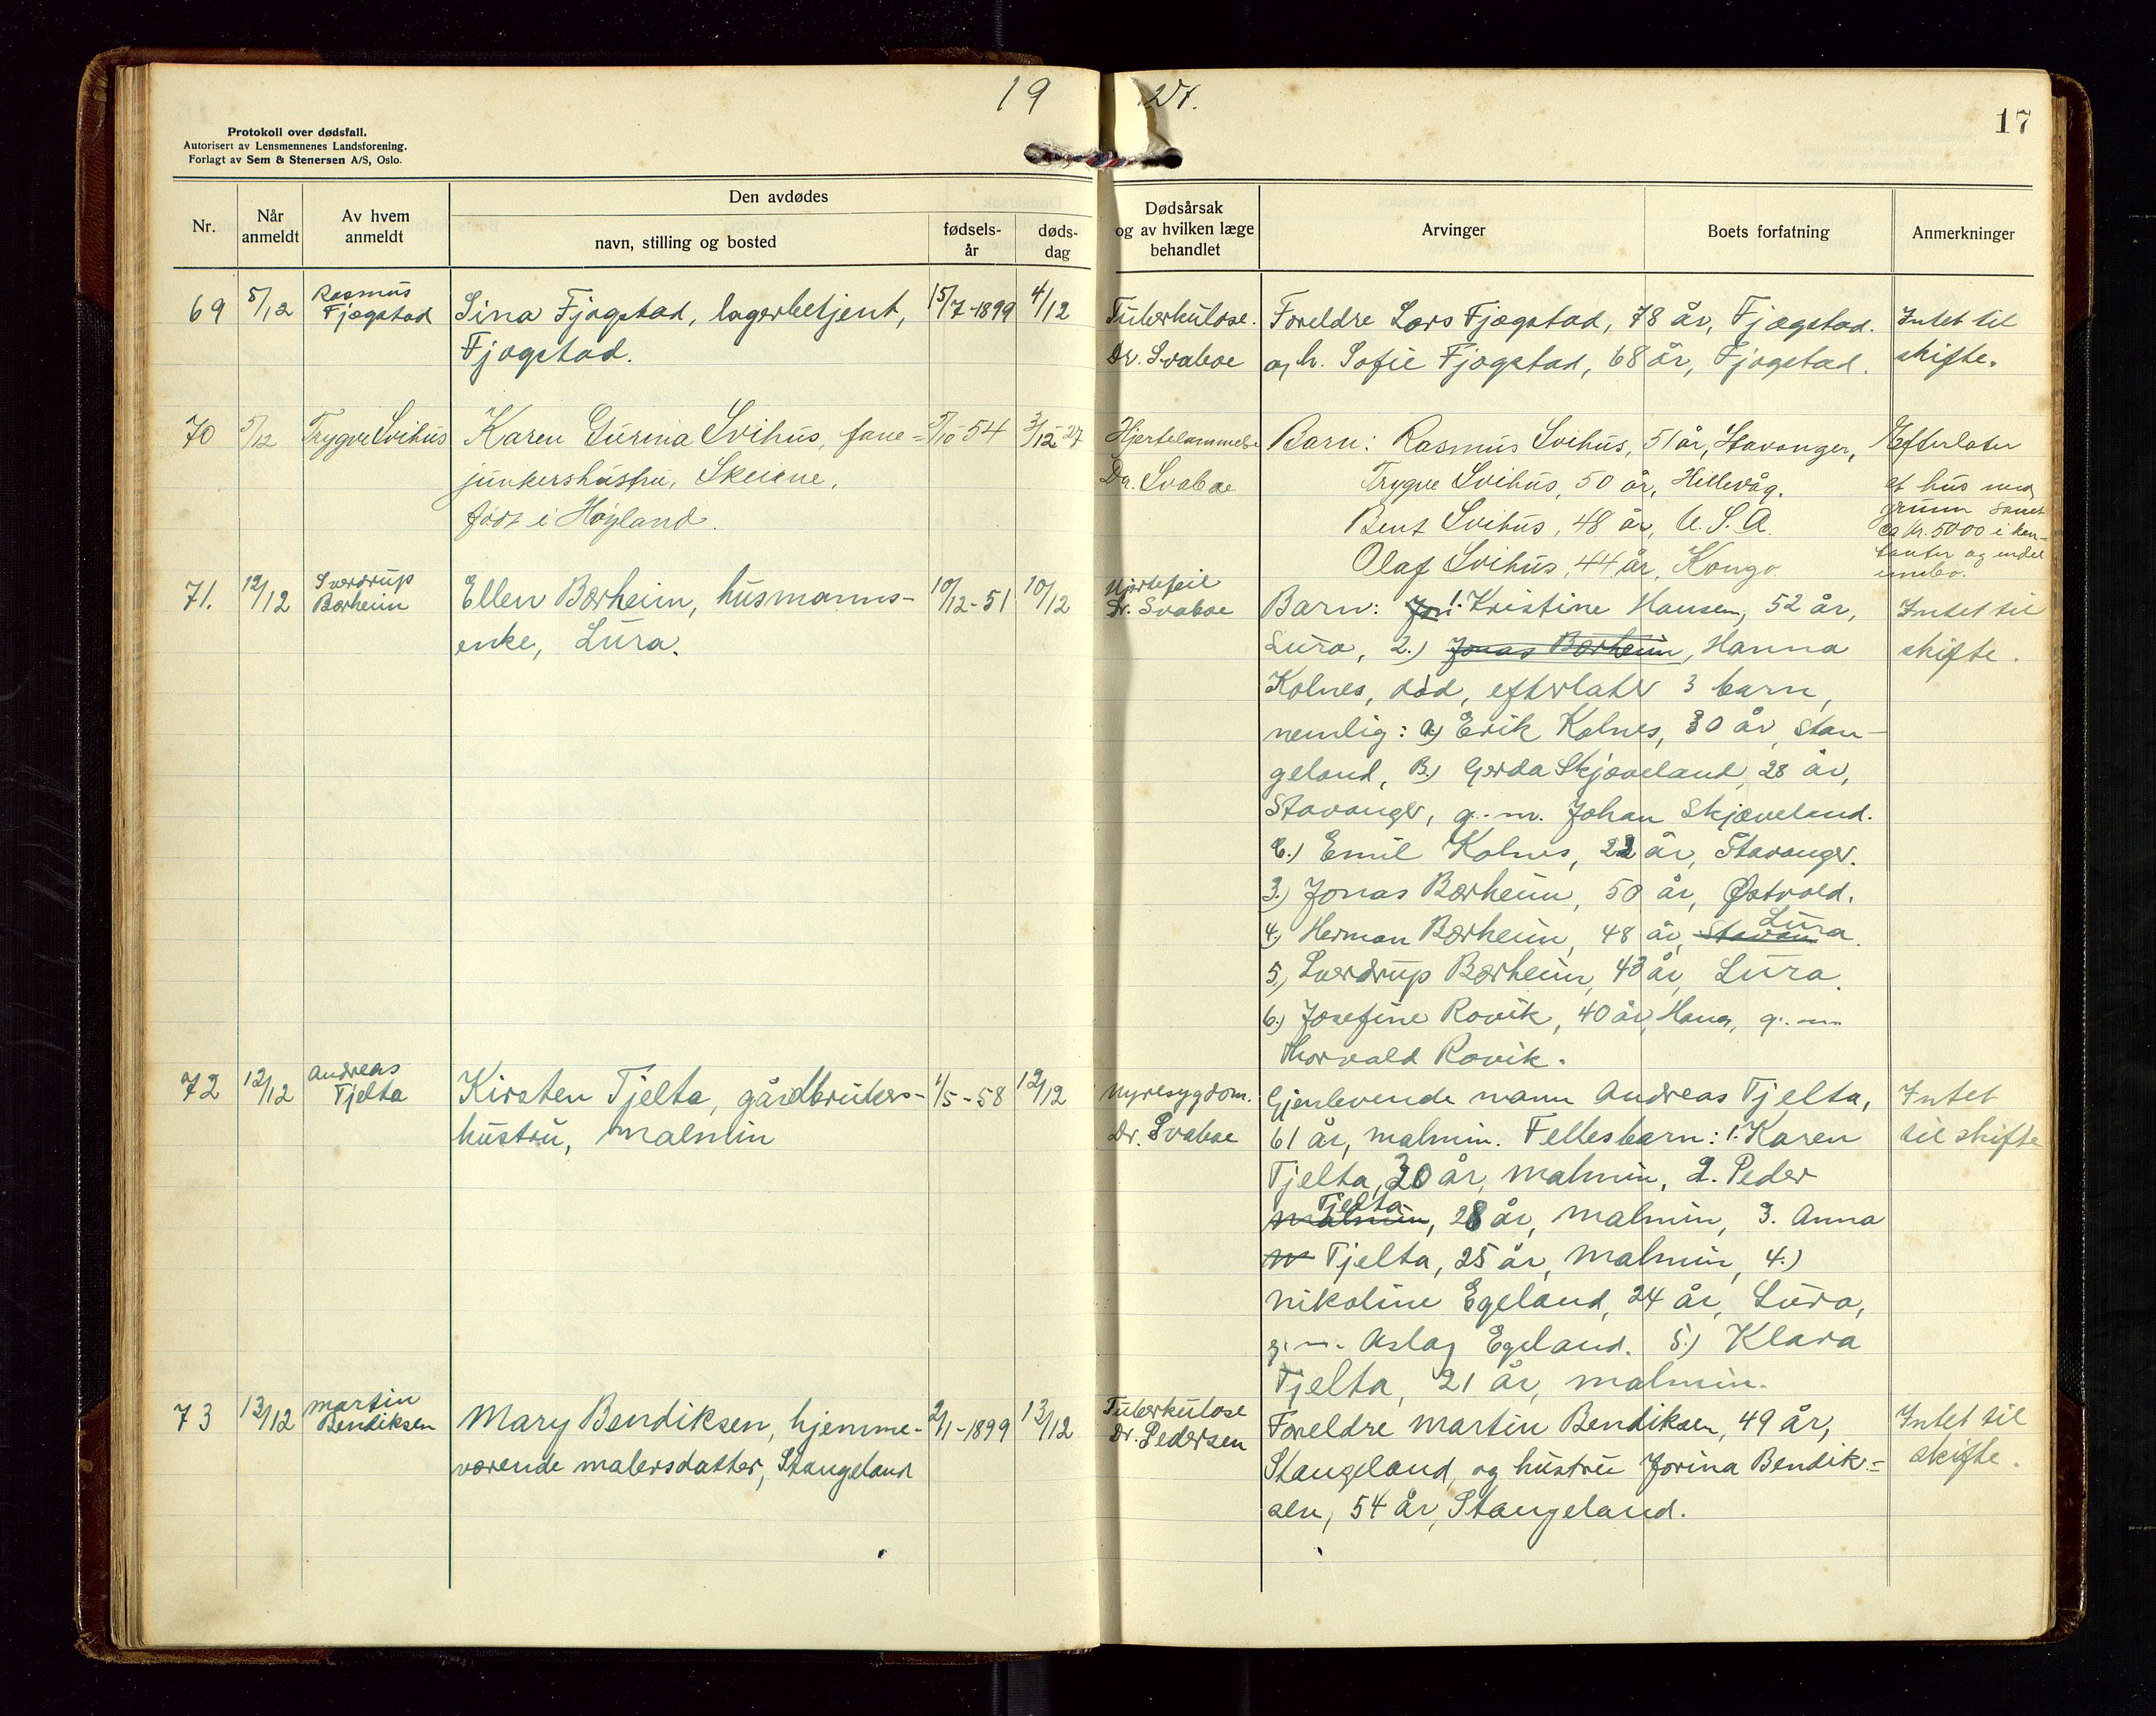 19 27.
17
Protokoll over dødsfall.
Autorisert av Lensmennenes Landsforening.
Forlagt av Sem & Stenersen A/S, Oslo.
Nr.
Når anmeldt
Av hvem anmeldt
Den avdødes
navn, stilling og bosted
fødsels-år
døds-dag
Dødsårsak og av hvilken læge behandlet
Arvinger
Boets forfatning
Anmerkninger
69 5/12 Rasmus Fjogstad
Sina Fjogstad, lagerbetjent,
Fjogstad.
15/7-1899 4/12
Tuberkulose.
Dr. Svaboe
Foreldre Lars Fjogstad, 78 år, Fjogstad.
og h. Sofie Fjogstad, 68 år, Fjogstad.
Intet til
skifte.
70 5/12 Trygve Svihus
Karen Gurina Svihus, fane=
junkershustru, Skeiane,
født i Høyland.
5/10-54 3/12-27
Hjertelammelse
Dr. Svaboe
Barn: Rasmus Svihus, 51 år, Stavanger,
Trygve Svihus, 50 år, Hillevåg.
Bent Svihus, 48 år, U.S.A.
Olaf Svihus, 44 år, Kongo.
Efterlater
et hus med
grunn samt
ca kr. 5000 i kon-
tanter og endel
innbo.
71. 12/12 Sverdrup Børheim
Ellen Børheim, husmanns-
enke, Lura.
10/12-51 10/12
Hjertefeil
Dr. Svaboe
Barn: Jon 1. Kristine Hansen, 52 år,
Lura, 2.) Jonas Børheim, Hanna
Kolnes, død, efterlater 3 barn,
nemlig: a) Erik Kolnes, 30 år, Stan-
geland, B.) Gerda Skjæveland, 28 år,
Stavanger, g. m. Johan Skjæveland.
C.) Emil Kolnes, 22 år, Stavanger.
3.) Jonas Børheim, 50 år, Østvold.
4.) Herman Børheim, 48 år, Stavan Lura.
5.) Sverdrup Børheim, 43 år, Lura.
6.) Josefine Rovik, 40 år, Hana, g. m.
Thorvald Rovik.
Intet til
skifte.
72 12/12 Andreas Tjelta
Kirsten Tjelta, gårdbrukers-
hustru, Malmin
1/5-58 12/12
Nyresygdom.
Dr. Svaboe
Gjenlevende mann Andreas Tjelta,
61 år, Malmin. Fellesbarn: 1. Karen
Tjelta, 30 år, Malmin, 2. Peder
Malmin Tjelta, 28 år, Malmin, 3. Anna
M Tjelta, 25 år, Malmin, 4.)
Nikoline Egeland, 24 år, Lura,
g. m. Aslag Egeland. 5.) Klara
Tjelta, 21 år, Malmin.
Intet
til skifte
73 13/12 Martin Bendiksen
Mary Bendiksen, hjemme-
værende malersdatter, Stangeland
2/1-1899 13/12
Tuberkulose
Dr. Pedersen
Foreldre Martin Bendiksen, 49 år,
Stangeland, og hustru Jorina Bendik=
sen, 54 år, Stangeland.
Intet til
skifte.